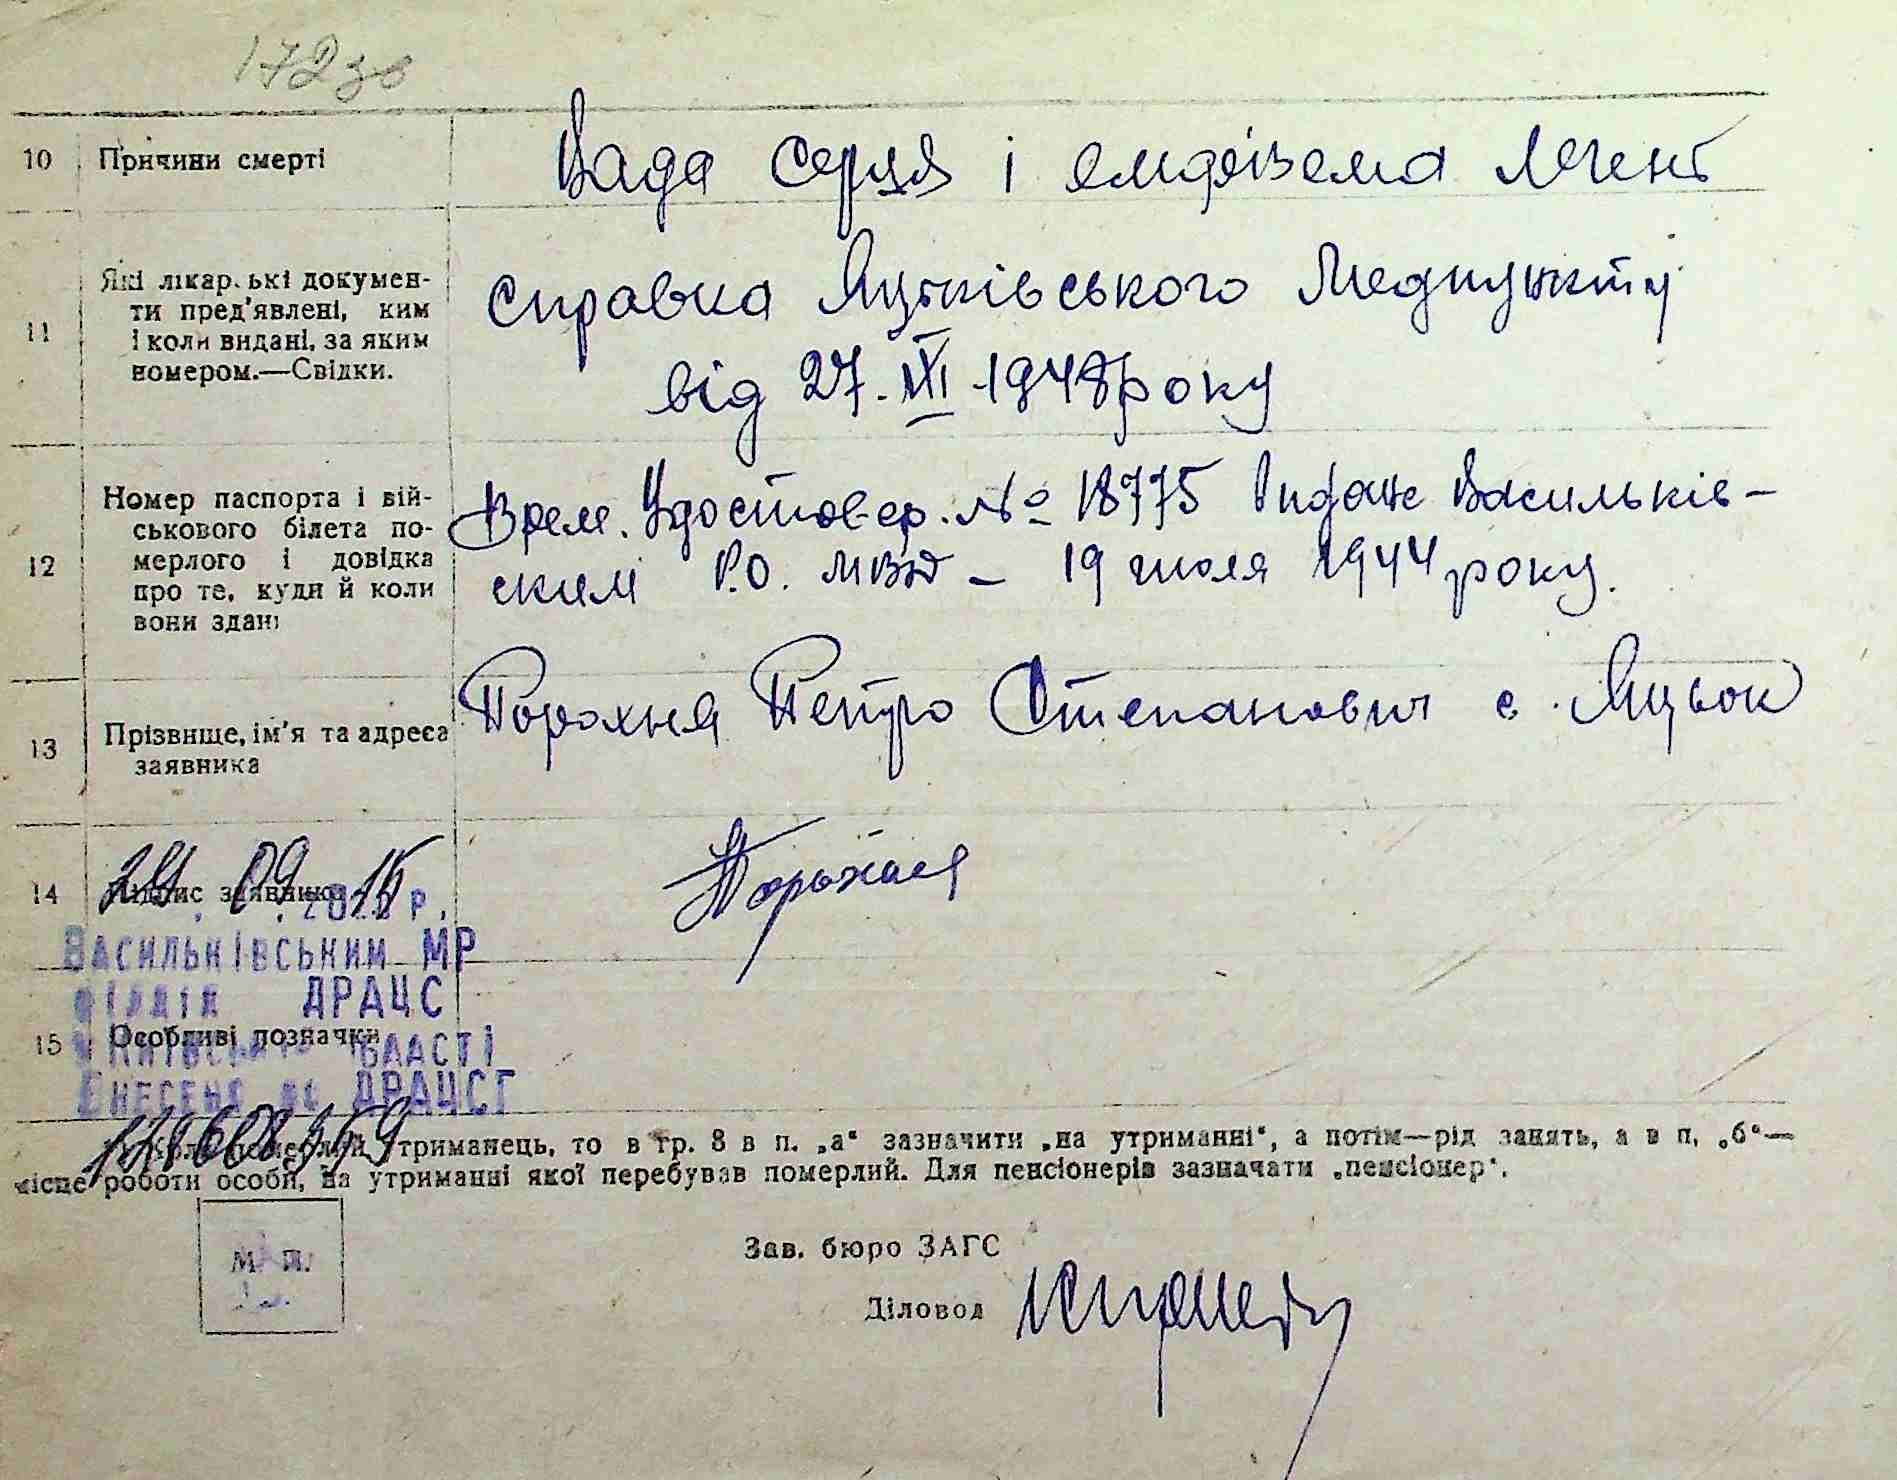 172зв
10 Причини смерті
Вада серця і емфізема легень
11 Які лікарські докумен-
ти пред'явлені, ким
і коли видані, за яким
номером.—Свідки.
справка Яцьківського Медпункту
від 27. XII 1948 року
12 Номер паспорта і вій-
ськового білета по-
мерлого і довідка
про те, куди й коли
вони здані
Врем. Удостовер. № 18775 Видане Васильків-
ским Р.О. МВД – 19 июля 1944 року.
13 Прізвище, ім'я та адреса
заявника
Порохня Петро Степанович с. Яцьок
14 Підпис заявника
Порохня
29 09 15
р.
Васильківським МР
відділ ДРАЦС
Київській області
Внесено до ДРАЦСГ
15 Особливі позначки
утриманець, то в гр. 8 в п. „а“ зазначити „на утриманні“, а потім—рід занять, а в п. „б“—
місце роботи особи, на утриманні якої перебував померлий. Для пенсіонерів зазначати „пенсіонер“.
М. П.
Зав. бюро ЗАГС
Діловод